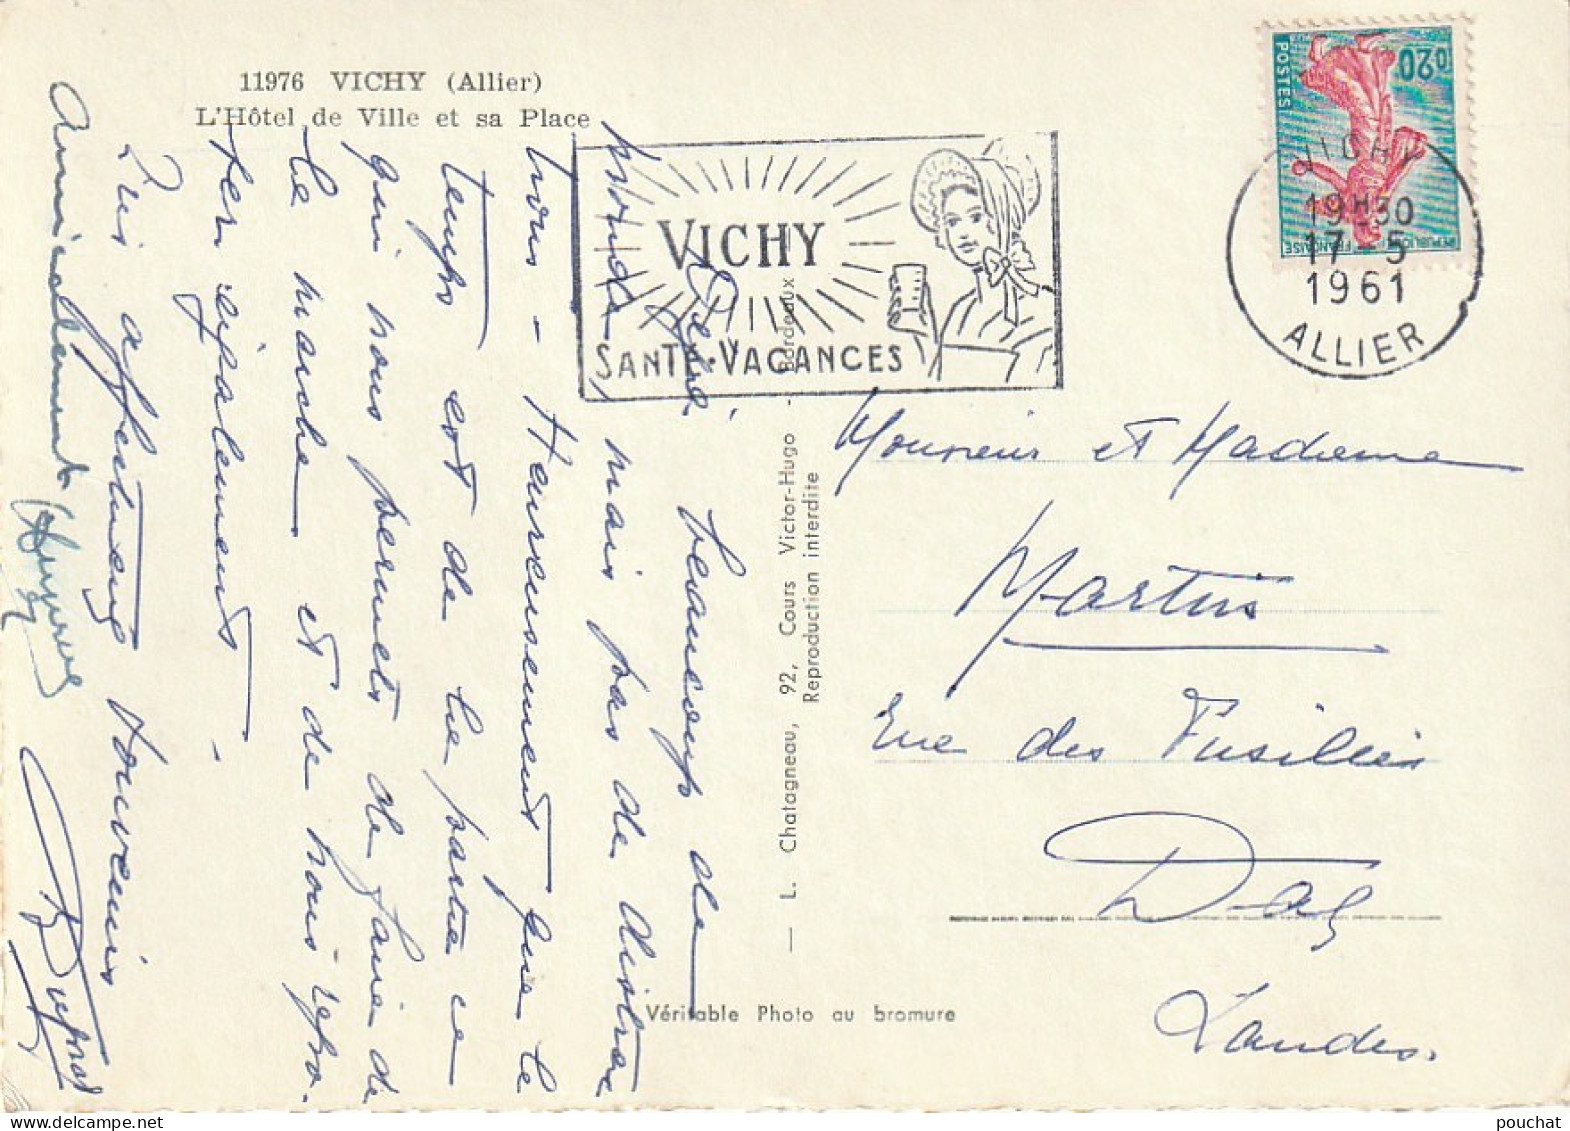 11976 VICHY (Allier)
L'Hôtel de Ville et sa Place
0,20
POSTES
REPUBLIQUE FRANÇAISE
VICHY
19H30
17 - 5
1961
ALLIER
VICHY
SANTÉ. VACANCES
Déjà beaucoup de
monde, mais pas de distrac
tions - Heureusement que le
temps est de la partie ce
qui nous permets de faire de
la marche et de nous repo-
ser également -
Puis affectueux souvenirs
Amicalement
— L. Chatagneau, 92, Cours Victor-Hugo - Bordeaux
Reproduction interdite
Véritable Photo au bromure
Monsieur et Madame
Martin
Rue des Fusillés
Dax
Landes.
pouchat